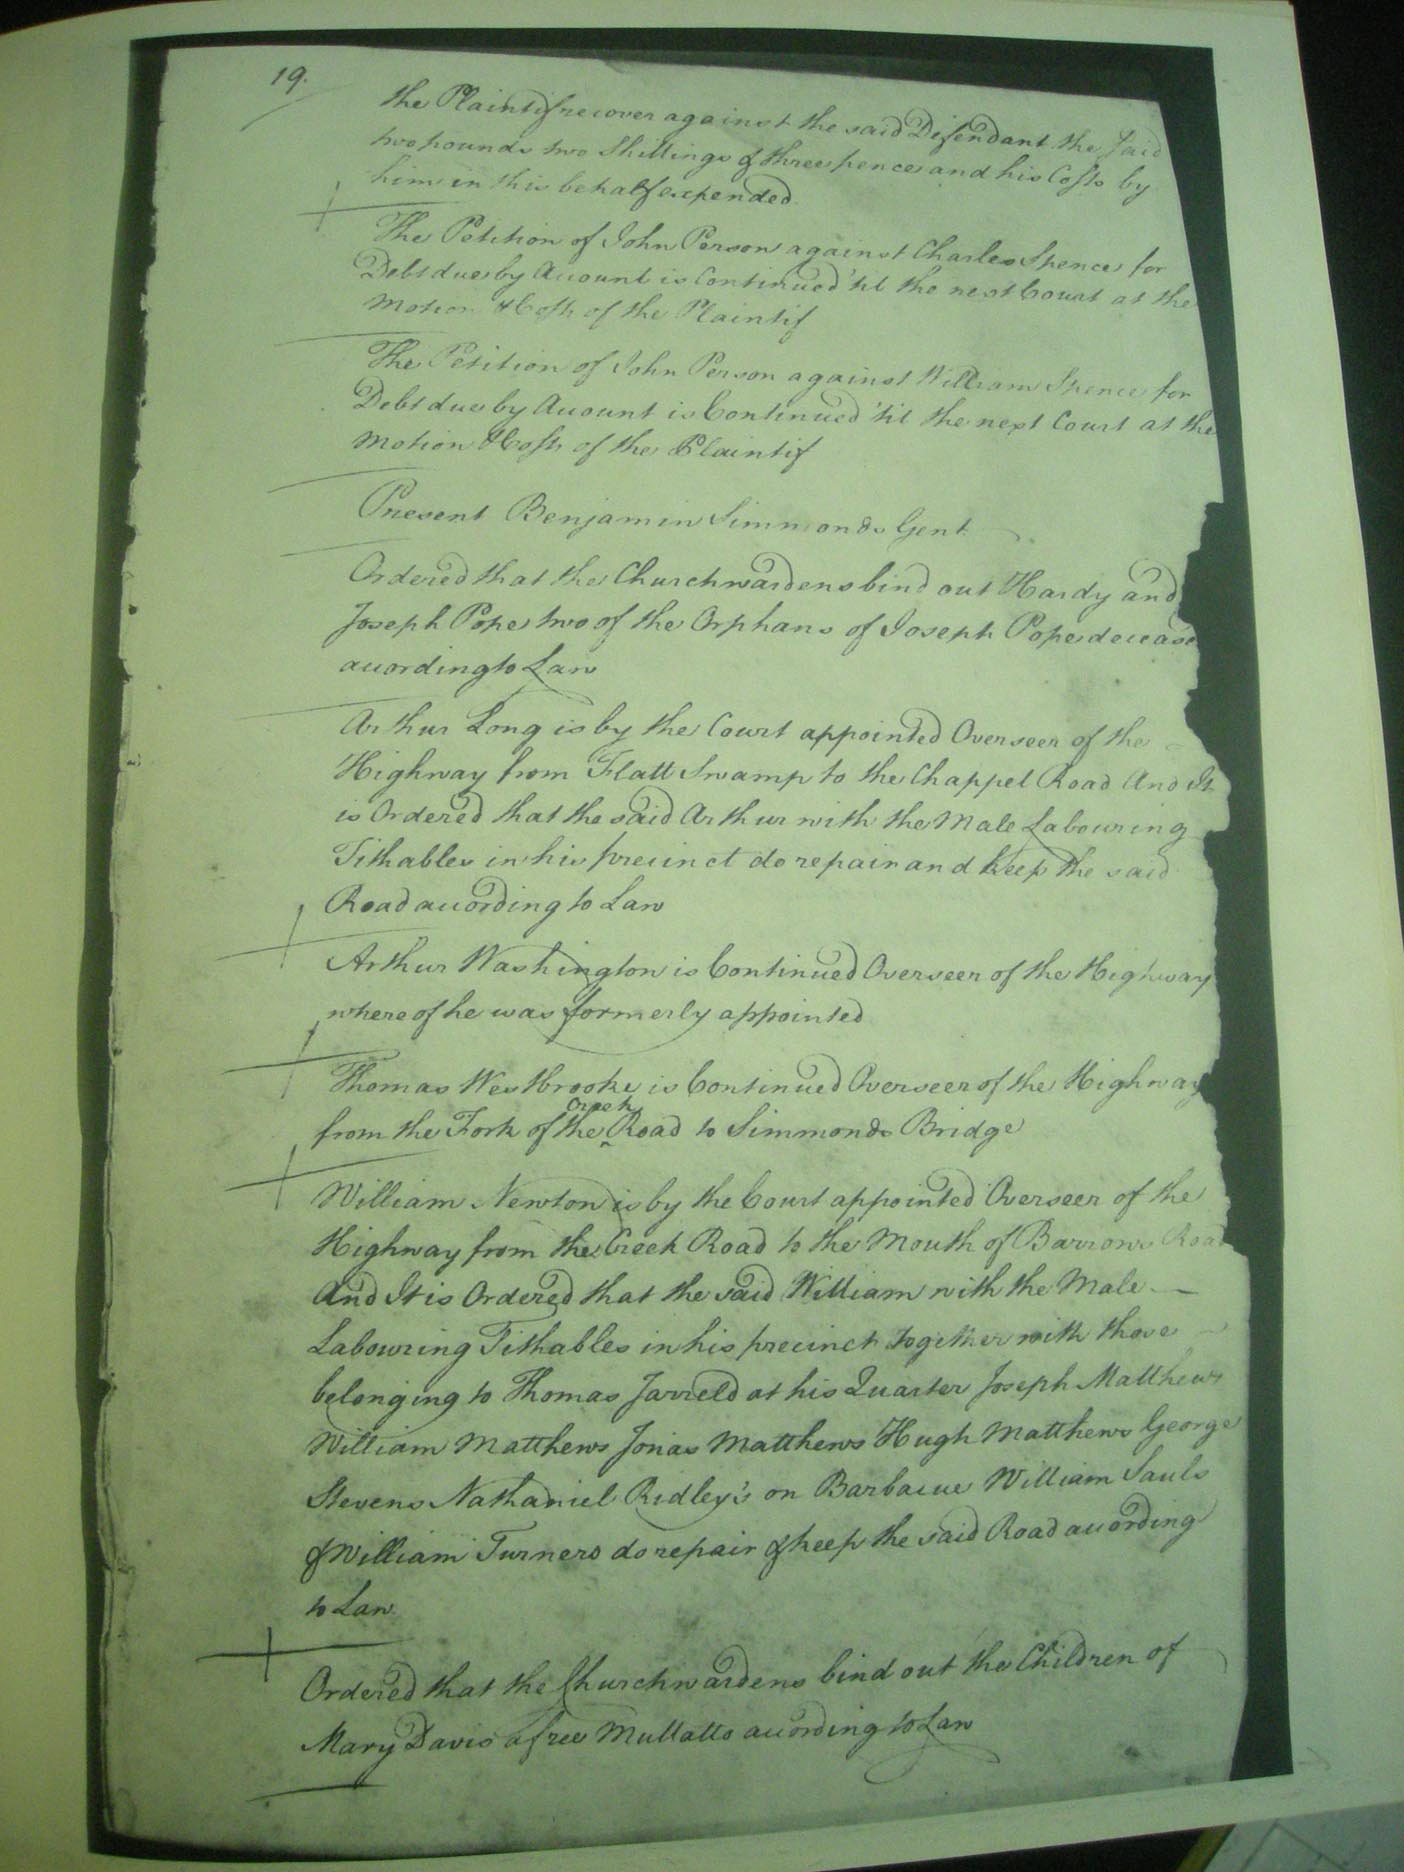 19.
the Plaintif recover against the said Defendant the said
two pounds two Shillings & three pence and his Costs by
him in this behalf expended.
The Petition of John Person against Charles Spence for
Debt due by Account is Continued 'til the next Court at the
Motion & Costs of the Plaintif
The Petition of John Person against William Spence for
Debt due by Account is Continued 'til the next Court at the
Motion & Costs of the Plaintif
Present Benjamin Simmonds Gent
Ordered that the Churchwardens bind out Hardy and
Joseph Pope two of the Orphans of Joseph Pope deceas
according to Law
Arthur Long is by the Court appointed Overseer of the
Highway from Flatt Swamp to the Chappel Road And It
is Ordered that the said Arthur with the Male Labouring
Tithables in his precinct do repair and keep the said
Road according to Law
Arthur Washington is Continued Overseer of the Highway
where of he was formerly appointed
Thomas Westbrooke is Continued Overseer of the Highway
Creek
from the Fork of the ^ Road to Simmonds Bridge
William Newton is by the Court appointed Overseer of the
Highway from the Creek Road to the Mouth of Barrows Road
And It is Ordered that the said William with the Male
Labouring Tithables in his precinct together with those
belonging to Thomas Jarreld at his Quarter Joseph Matthews
William Matthews Jonas Matthews Hugh Matthews George
Stevens Nathaniel Ridley's on Barbacue William Sauls
& William Turners do repair & keep the said Road according
to Law.
Ordered that the Churchwardens bind out the Children of
Mary Davis a free Mullatto according to Law